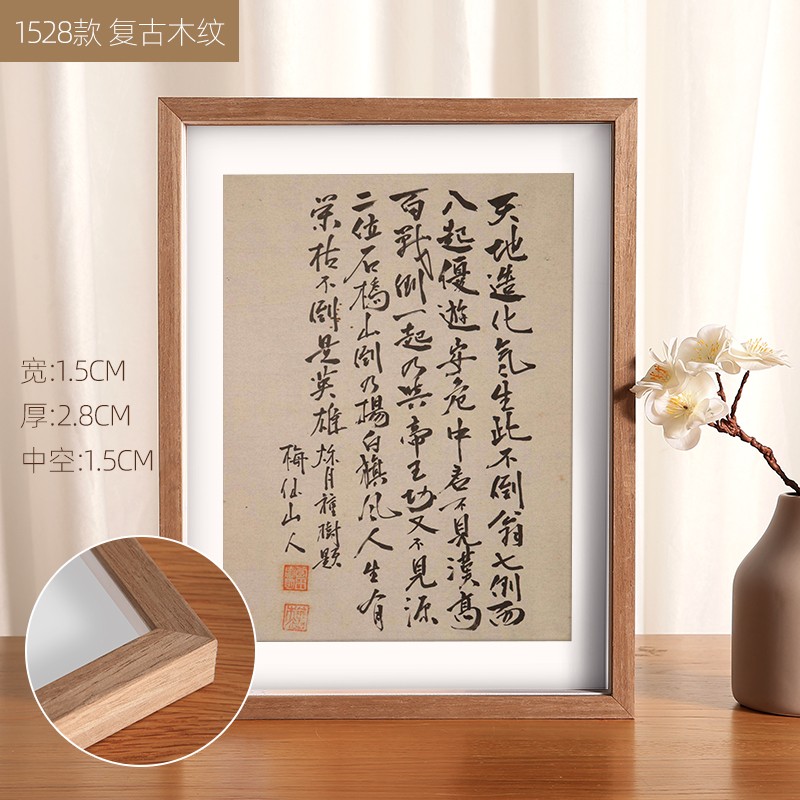 1528款 复古木纹
天地造化氣生此不倒翁七倒而
八起優遊安危中君不見漢高
百戰倒一起乃帝王功又不見源
二位石橋山倒乃揚白旗風人生有
榮枯不倒是英雄
月種樹題
梅仙山人
宽:1.5CM
厚:2.8CM
中空:1.5CM